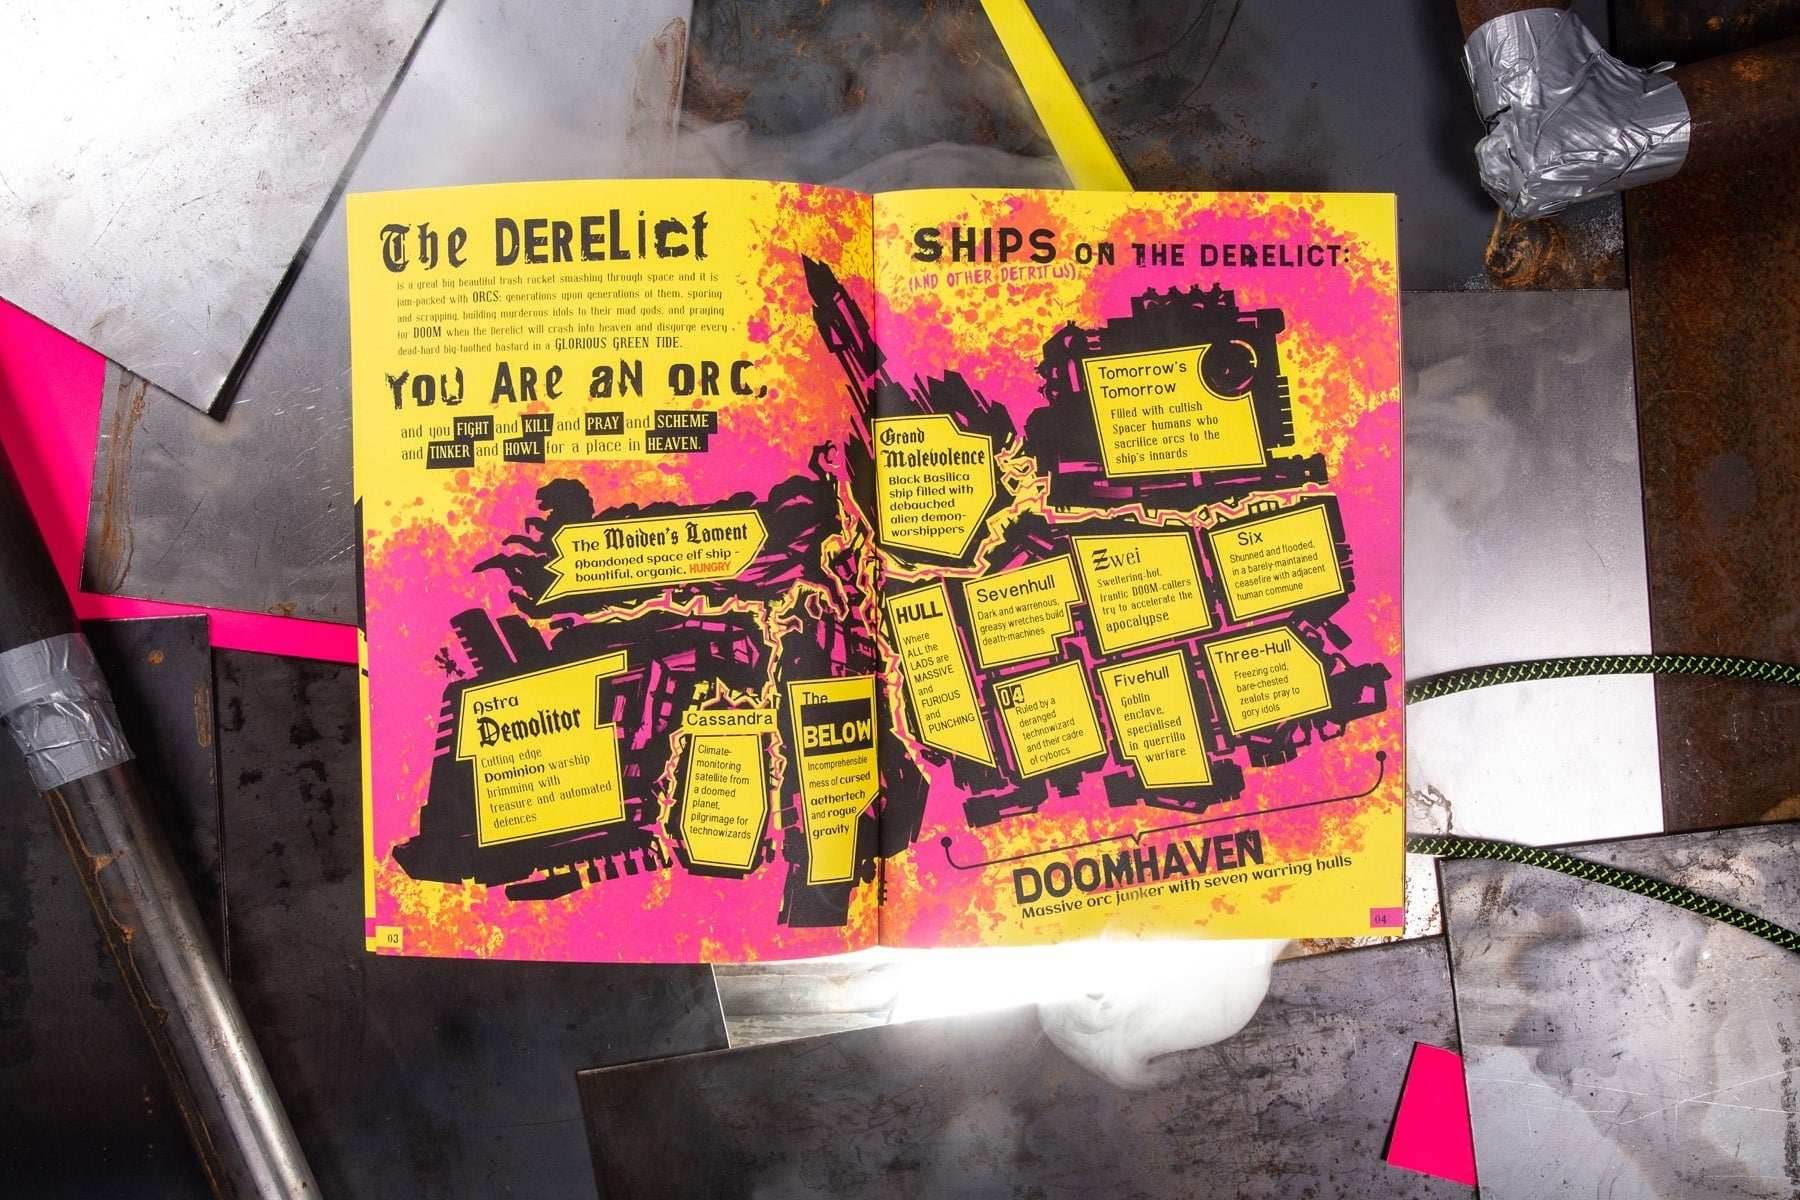 The DERELict
is a great big beautiful trash rocket smashing through space and it is
jam-packed with ORCS: generations upon generations of them, sporing
and scrapping, building murderous idols to their mad gods, and praying
for DOOM when the Derelict will crash into heaven and disgorge every
dead-hard big-toothed bastard in a GLORIOUS GREEN TIDE.
YOU ARe aN ORC,
and you FIGHT and KILL and PRAY and SCHEME
and TINKER and HOWL for a place in HEAVEN.
The Maiden's Lament
Abandoned space elf ship -
bountiful, organic, HUNGRY
Astra
Demolitor
Cutting edge
Dominion warship
brimming with
treasure and automated
defences
Cassandra
Climate-
monitoring
satellite from
a doomed
planet,
pilgrimage for
technowizards
The
BELOW
Incomprehensible
mess of cursed
aethertech
and rogue
gravity
03
SHIPS ON THE DERELICT:
(AND OTHER DETRITUS)
Tomorrow's
Tomorrow
Filled with cultish
Spacer humans who
sacrifice orcs to the
ship's innards
Grand
Malevolence
Black Basilica
ship filled with
debauched
alien demon-
worshippers
HULL
Where
ALL the
LADS are
MASSIVE
and
FURIOUS
and
PUNCHING
Sevenhull
Dark and warrenous,
greasy wretches build
death-machines
Zwei
Sweltering-hot,
frantic DOOM-callers
try to accelerate the
apocalypse
Six
Shunned and flooded,
in a barely-maintained
ceasefire with adjacent
human commune
04
Ruled by a
deranged
technowizard
and their cadre
of cyborcs
Fivehull
Goblin
enclave,
specialised
in guerrilla
warfare
Three-Hull
Freezing cold,
bare-chested
zealots pray to
gory idols
DOOMHAVEN
Massive orc junker with seven warring hulls
04